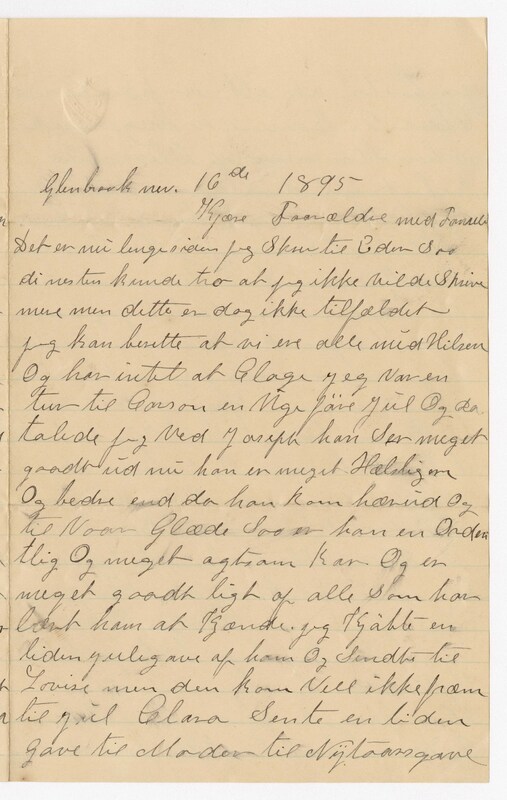 Glenbrook nev. 16de 1895
Kjære Foorældre med Familie
Det er nu lenge siden jeg Skrev til Eder Soo
di nesten kunde tro at jeg ikke vilde Skrive
mere men dette er dog ikke tilfældet
jeg kan berette at vi ere alle med Hilsen
Og har intet at Clage jeg var en
tur til Carson en Uge före jul Og da
talede jeg ved Joseph han Ser meget
goodt ud nu han er meget Helsigere
Og bedre end da han kom hærud Og
til Voor Glæde Soo er han en Orden
tlig Og meget agtsom Kar. Og er
meget goodt ligt af alle Som har
lært ham at Kjænde. jeg Kjøbte en
liden julegave af ham Og Sendte til
Lovise men den kom Vell ikke fræm
til jul Clara Sente en liden
gave til Moder til Nytoorsgave